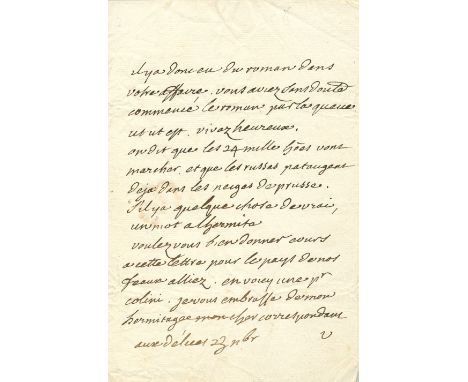 il y a donc eu du roman dans
votre affaire. vous aviez sans doute
commencé le roman par la queue
ut ut est. vivez heureux.
on dit que les 24 mille hōes vont
marcher, et que les russes pataugent
deja dans les neiges de prusse.
s'il y a quelque chose de vrai,
un mot a lhermite
voulez vous bien donner cours
a cette lettre pour le pays de nos
feaux alliez. en voicy une pr
colini. je vous embrasse de mon
hermitage mon cher correspondant
aux délices 23 nbr
V